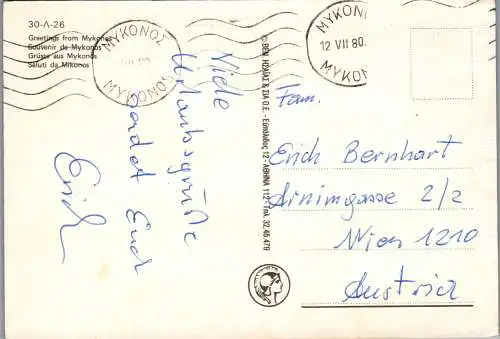 30-Λ-26
Greetings from Mykonos
Souvenir de Mykonos
Grüsse aus Mykonos
Saluti da Mikonos
ΜΥΚΟΝΟΣ
MYKONOS
ΜΥΚΟΝΟΣ
12 VII 80.
MYKONOS
Viele
Urlaubsgrüße
sendet Euch
Erich
ΑΘΗΝΑ 112 - Τηλ. 32.46.479
Fam.
Erich Bernhart
Arnimgasse 2/2
Wien 1210
Austria